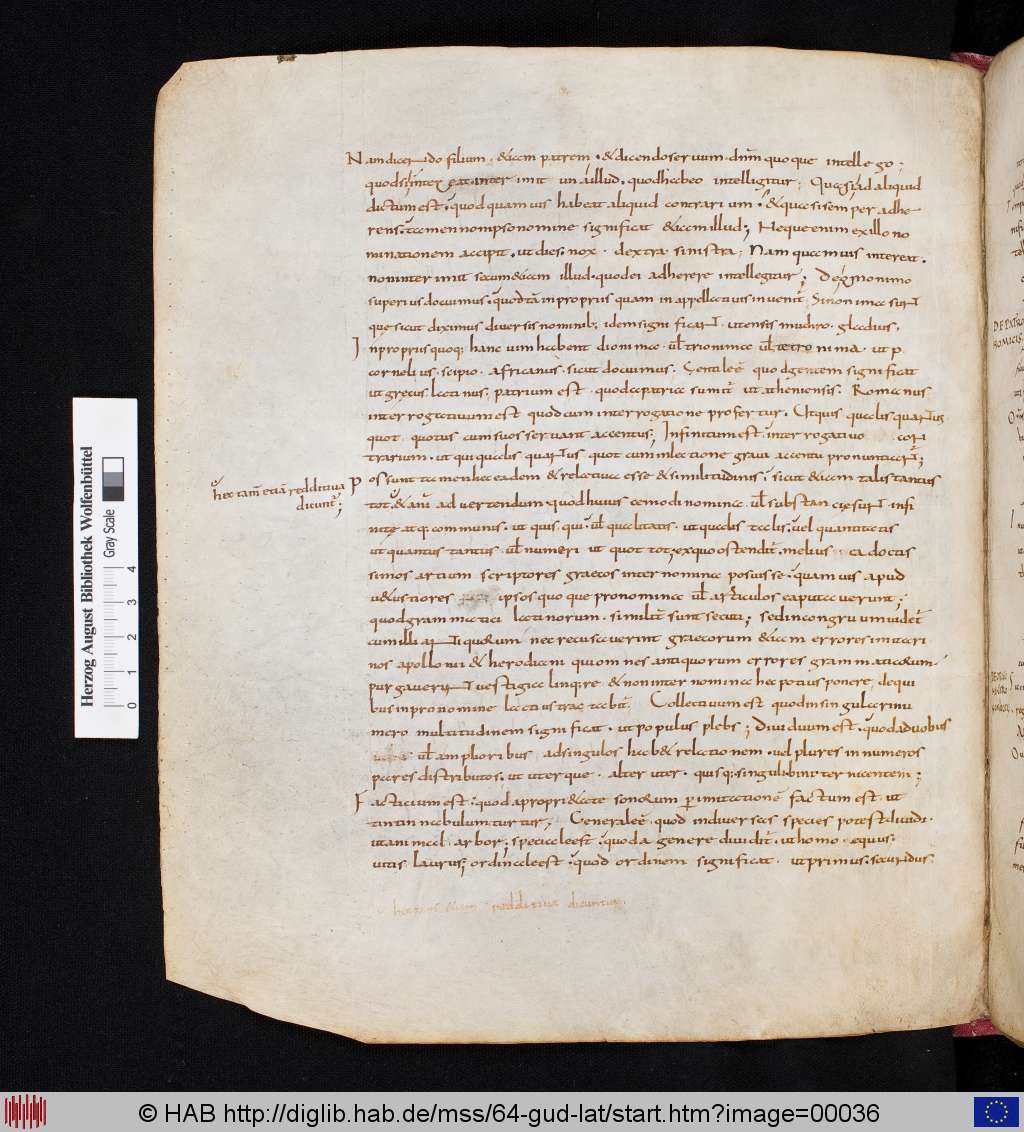 Nam dicendo filium · & iam patrem · & dicendo seruum · dnm quoque intellego ;
quodsi intereat interimit una illud · quod habeo intelligitur ; Quasi ad aliquid
dictum est · quod quamuis habeat aliquid contrarium · & quasi semper adhe
rens · tamen non ipso nomine significat & iam illud ; Neque enim ex illo no
minationem accipit · ut dies · nox · dextra · sinistra ; Nam quamuis intereat ·
non interimit secum & iam illud · quod ei adherere intellegitur ; De
superius docuimus · quod tā in propriis quam in appellatiuis inuenit̄ ; Si nomina sunt
que sicut diximus diuersis nominib; idem significant · ut ensis · muchro · gladius ·
In propriis quoq; hanc uim habent dionima · ul trionima ul tetronima · ut p ·
cornelius · scipio · africanus · sicut docuimus · Gentile ē quod gentem significat
ut grecus latinus ; patrium est · quod a patria sumit̄ ut atheniensis · Romanus
interrogatiuum est quod cum interrogatione profertur · Ut quis qualis quantus
quot · quotus cum suos seruant accentus ; Infinitum est interrogatiuo con
trarium · ut qui qualis quantus quot cum inlectione graua accentu pronuntiant̄ ;
Possunt tamen hec eadem & relatiua esse & similitudinis · sicut & iam talis tantus
tot · & aut aduertendum quod huiuscemodi nomina ul substantiae sunt infi
nitę atq; communis · ut quis · qui · ul qualitatis · ut qualis talis · uel quantitatis
ut quantus tantus · ul numeri ut quot tot · ex quo ostendit̄ melius doctis
simos artium scriptores graecos inter nomina posuisse · quamuis apud
uetustiores ipsos quoque pronomina ul articulos caputauerunt ;
quod grammatici latinorum · similit̄ sunt secuti ; sed incongruum uidet̄
cum illi antiquorum nec recusauerint graecorum & iam errores imitari
nos apollonii & herodiani qui omnes antiquorum errores grammaticorum
purgauerunt uestigia linquere & non inter nomina hec potius ponere · de qui
bus in pronomine latius tractabit̄ · Collectiuum est quod in singulari nu
mero multitudinem significat · ut populus plebs ; Diuiduum est · quod a duobus
ul amplioribus ad singulos hab& relationem · uel plures in numeros
pares distributos · ut uterque · alteruter · quisq; singuli bini ter ni centeni ;
Facticium est · quod a proprietate sonorum p imitationē factum est · ut
tintinnabulum turtur ; Generale ē quod in diuersas species potest diuidi ·
ut animal · arbor ; speciale est · quod a genere diuidit̄ · ut homo · equus ·
uitis laurus ; ordinale est · quod ordinem significat · ut primus · secundus ·
hec tam etiā redditiua
dicunt̄ ;
redditiua dicuntur
DE PATRO
NOMICIS
Herzog August Bibliothek Wolfenbüttel
Gray Scale
0 1 2 3 4
© HAB http://diglib.hab.de/mss/64-gud-lat/start.htm?image=00036